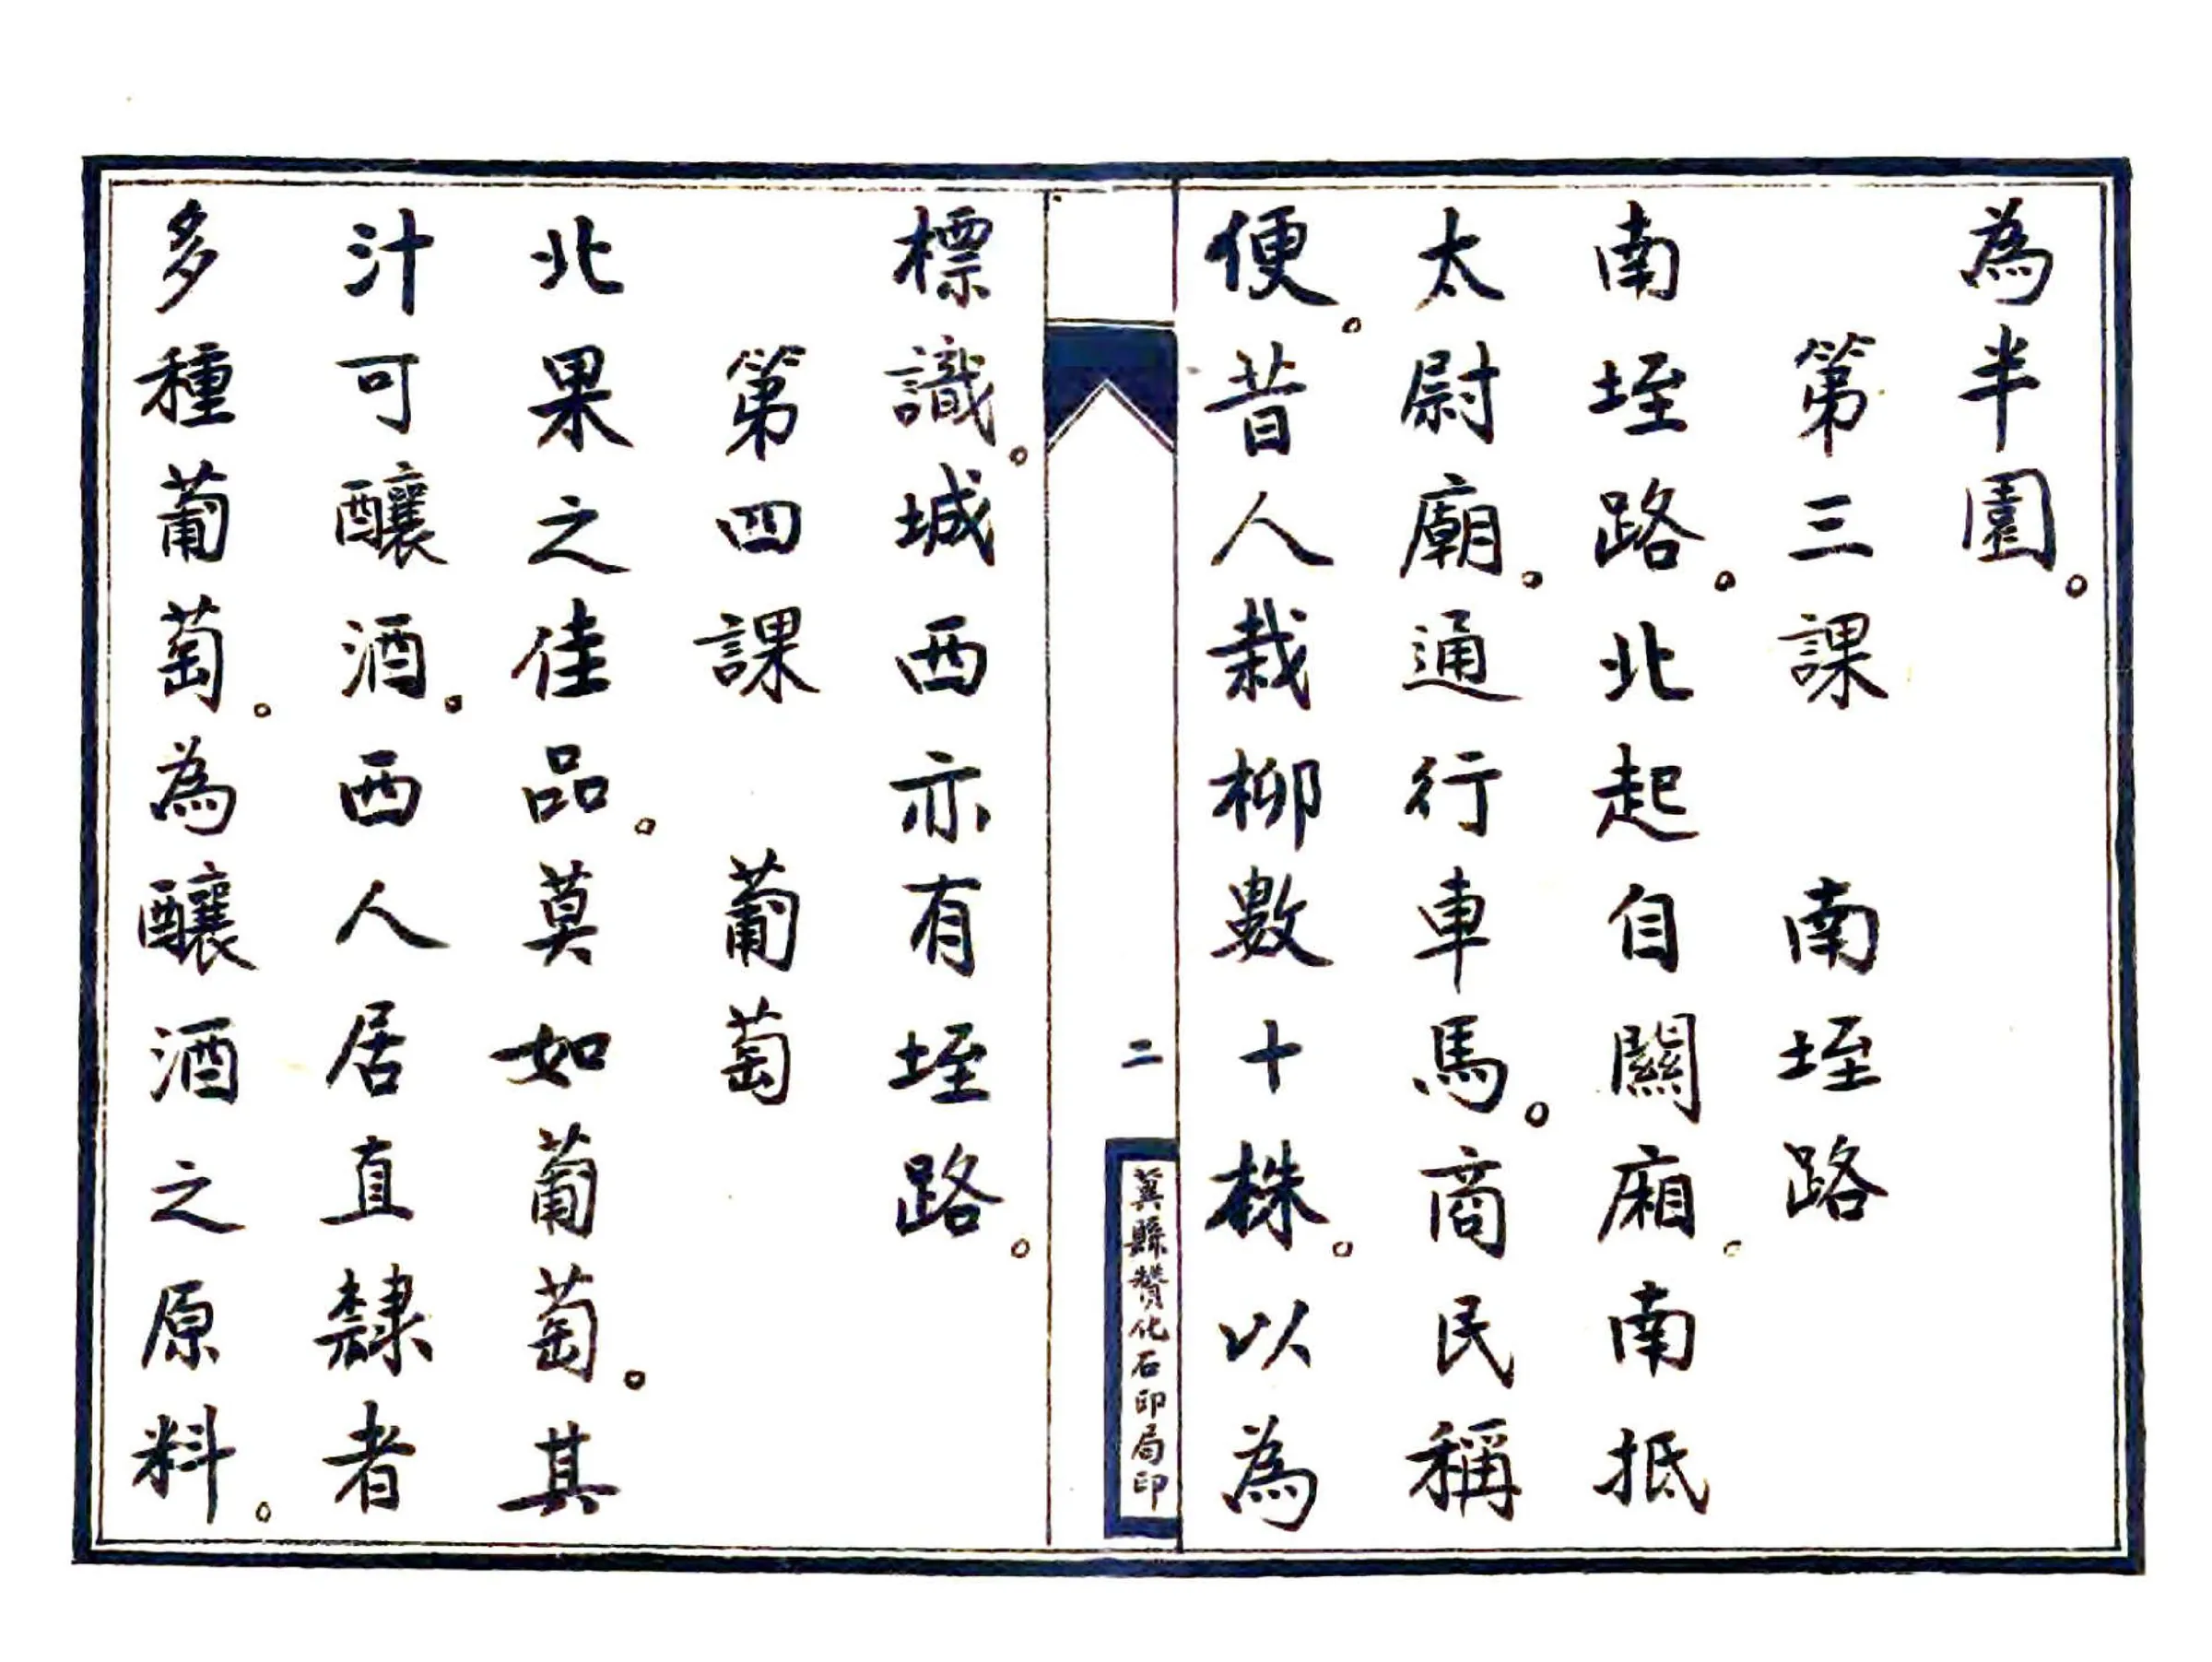 為半園。
第三課　南垤路
南垤路。北起自關廂。南抵
太尉廟。通行車馬。商民稱
便。昔人栽柳數十株。以為
二
冀縣贊化石印局印
標識。城西亦有垤路。
第四課　葡萄
北果之佳品。莫如葡萄。其
汁可釀酒。西人居直隸者
多種葡萄。為釀酒之原料。